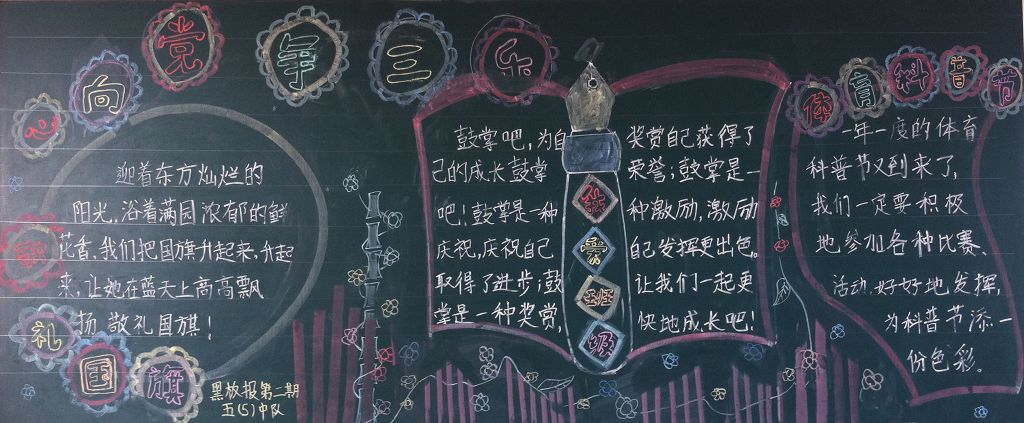 心向党争三乐
迎着东方灿烂的
阳光,浴着满园浓郁的鲜
花香,我们把国旗升起来,升起
来,让她在蓝天上高高飘
扬 敬礼国旗!
敬礼国旗
黑板报第二期
五(5)中队
鼓掌吧,为自
己的成长鼓掌
吧!鼓掌是一种
庆祝,庆祝自己
取得了进步;鼓
掌是一种奖赏,
班级
奖赏自己获得了
荣誉;鼓掌是一
种激励,激励
自己发挥更出色。
让我们一起更
快地成长吧!
体育科普节
一年一度的体育
科普节又到来了,
我们一定要积极
地参加各种比赛、
活动,好好地发挥,
为科普节添一
份色彩。